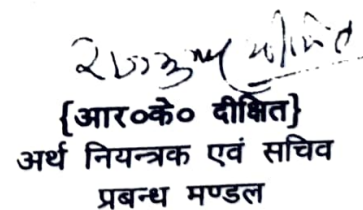 {आर०के० दीक्षित}
अर्थ नियन्त्रक एवं सचिव
प्रबन्ध मण्डल